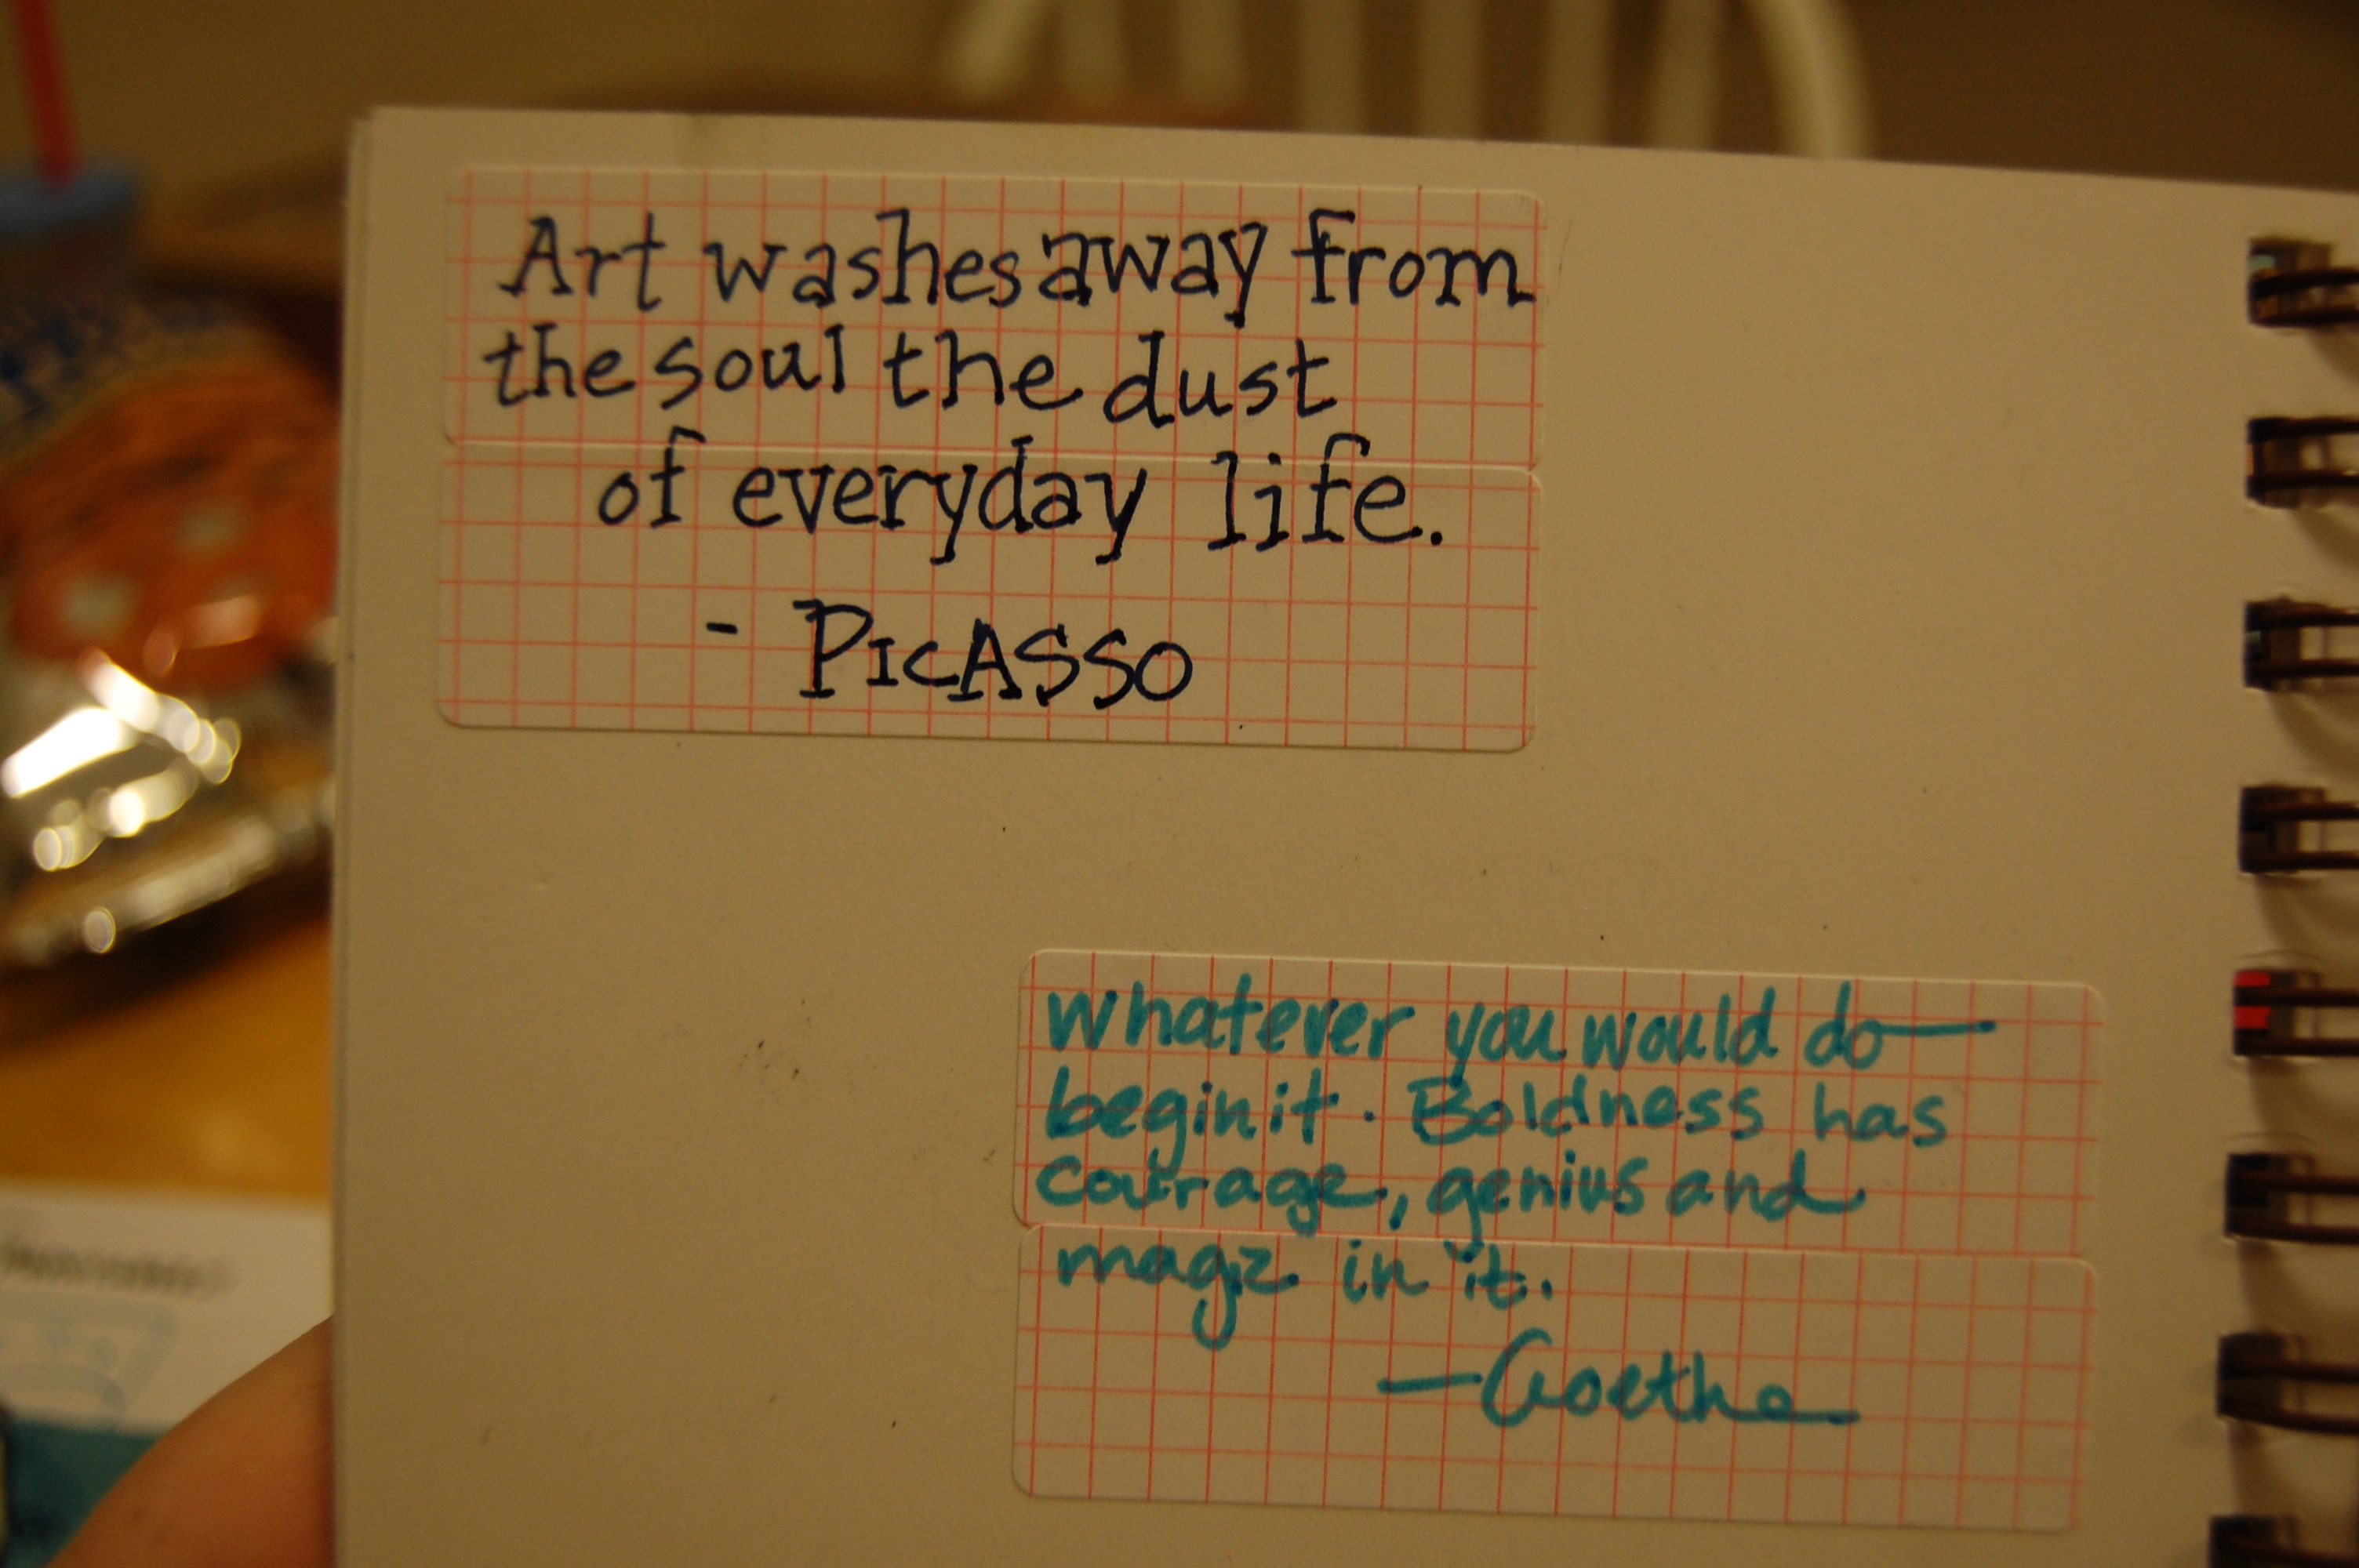 Art washes away from
the soul the dust
of everyday life.
- PICASSO
Whatever you would do—
begin it. Boldness has
courage, genius and
magic in it.
—Goethe